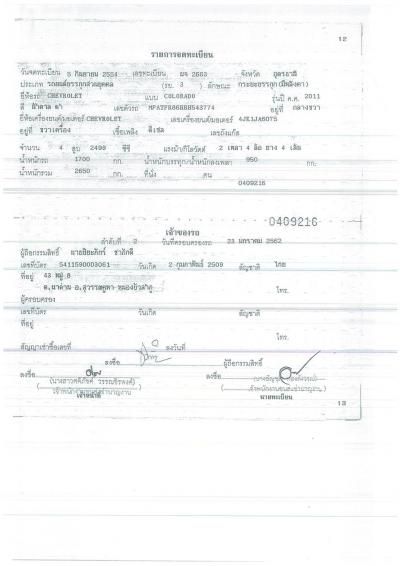 12
รายการจดทะเบียน
วันจดทะเบียน 8 กันยายน 2554 เลขทะเบียน ผจ 2603 จังหวัด อุดรธานี
ประเภท รถยนต์บรรทุกส่วนบุคคล (รย. 3 ) ลักษณะ กระบะบรรทุก
ยี่ห้อรถ CHEVROLET แบบ COLORADO รุ่นปี ค.ศ. 2011
สี เลขตัวรถ อยู่ที่ กลางขวา
ยี่ห้อเครื่องยนต์ CHEVROLET เลขเครื่องยนต์
อยู่ที่ ขวาเครื่อง เชื้อเพลิง ดีเซล เลขถังแก๊ส
จำนวน 4 สูบ 2499 ซีซี 2 เพลา 4 ล้อ ยาง 4 เส้น
น้ำหนักรถ 1700 กก. น้ำหนักบรรทุก/น้ำหนักลงเพลา 950 กก.
น้ำหนักรวม 2650 กก. ที่นั่ง คน
0409216
0409216
เจ้าของรถ
ลำดับที่ 2 วันที่ครอบครองรถ 23 มกราคม 2562
ผู้ถือกรรมสิทธิ์
เลขที่บัตร 5411590003061 วันเกิด 2 กุมภาพันธ์ 2509 สัญชาติ ไทย
ที่อยู่ 43 หมู่ 8
ต.นาด่าน อ.สุวรรณคูหา หนองบัวลำภู โทร.
ผู้ครอบครอง
เลขที่บัตร วันเกิด สัญชาติ
ที่อยู่
โทร.
สัญญาเช่าซื้อเลขที่ ลงวันที่
ลงชื่อ ผู้ถือกรรมสิทธิ์
ลงชื่อ ลงชื่อ
เจ้าหน้าที่ นายทะเบียน
13